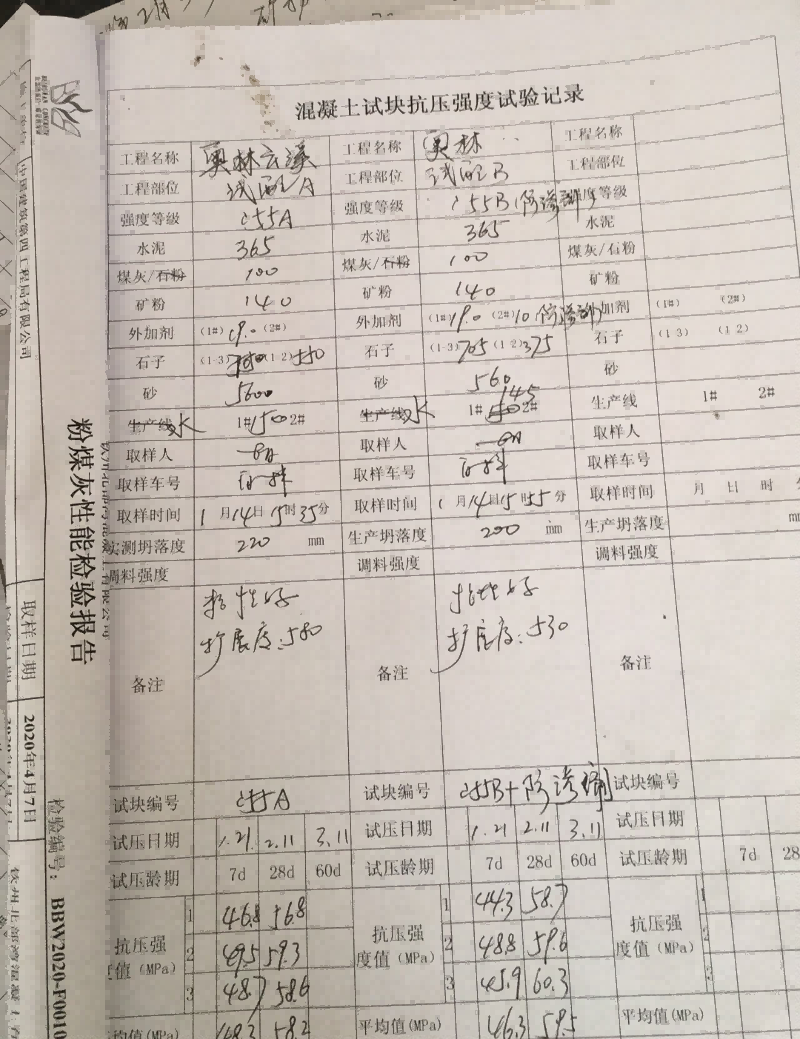 混凝土试块抗压强度试验记录
工程名称 奥林云溪 工程名称 奥林 工程名称
工程部位 试配A 工程部位 试配B 工程部位
强度等级 C55A 强度等级 C55B(防渗 强度等级
水泥 365 水泥 365 水泥
煤灰/石粉 100 煤灰/石粉 100 煤灰/石粉
矿粉 140 矿粉 140 矿粉
外加剂 (1#) 9.0 (2#) 外加剂 (1#) 9.0 (2#) 10 外加剂 (1#) (2#)
石子 (1-3) (1-2) 350 石子 (1-3) 705 (1-2) 375 石子 (1-3) (1-2)
砂 5600 砂 560 砂
生产线 水 1# 150 2# 生产线 水 1# 145 2# 生产线 1# 2#
取样人 取样人 取样人
取样车号 取样车号 取样车号
取样时间 1月14日15时35分 取样时间 1月14 15时55分 取样时间 月 日 时
实测坍落度 220 mm 生产坍落度 200 mm 生产坍落度
调料强度 调料强度 调料强度
备注 粘性好 备注 粘性好 备注
扩展度:580 扩展度:530
试块编号 C55A 试块编号 C55B+防渗 试块编号
试压日期 1.21 2.11 3.11 试压日期 1.21 2.11 3.11 试压日期
试压龄期 7d 28d 60d 试压龄期 7d 28d 60d 试压龄期 7d 28
抗压强度值(MPa) 抗压强度值(MPa) 抗压强度值(MPa)
1 46.8 56.8 1 44.3 58.7 1
2 49.5 59.3 2 48.8 59.6 2
3 48.7 58.6 3 45.9 60.3 3
平均值(MPa) 48.3 58.2 平均值(MPa) 46.3 59.5 平均值(MPa)
中国建筑第四工程局有限公司
粉煤灰性能检验报告
取样日期 2020年4月7日
检验编号: BBW2020-F0010
钦州北部湾混凝土有